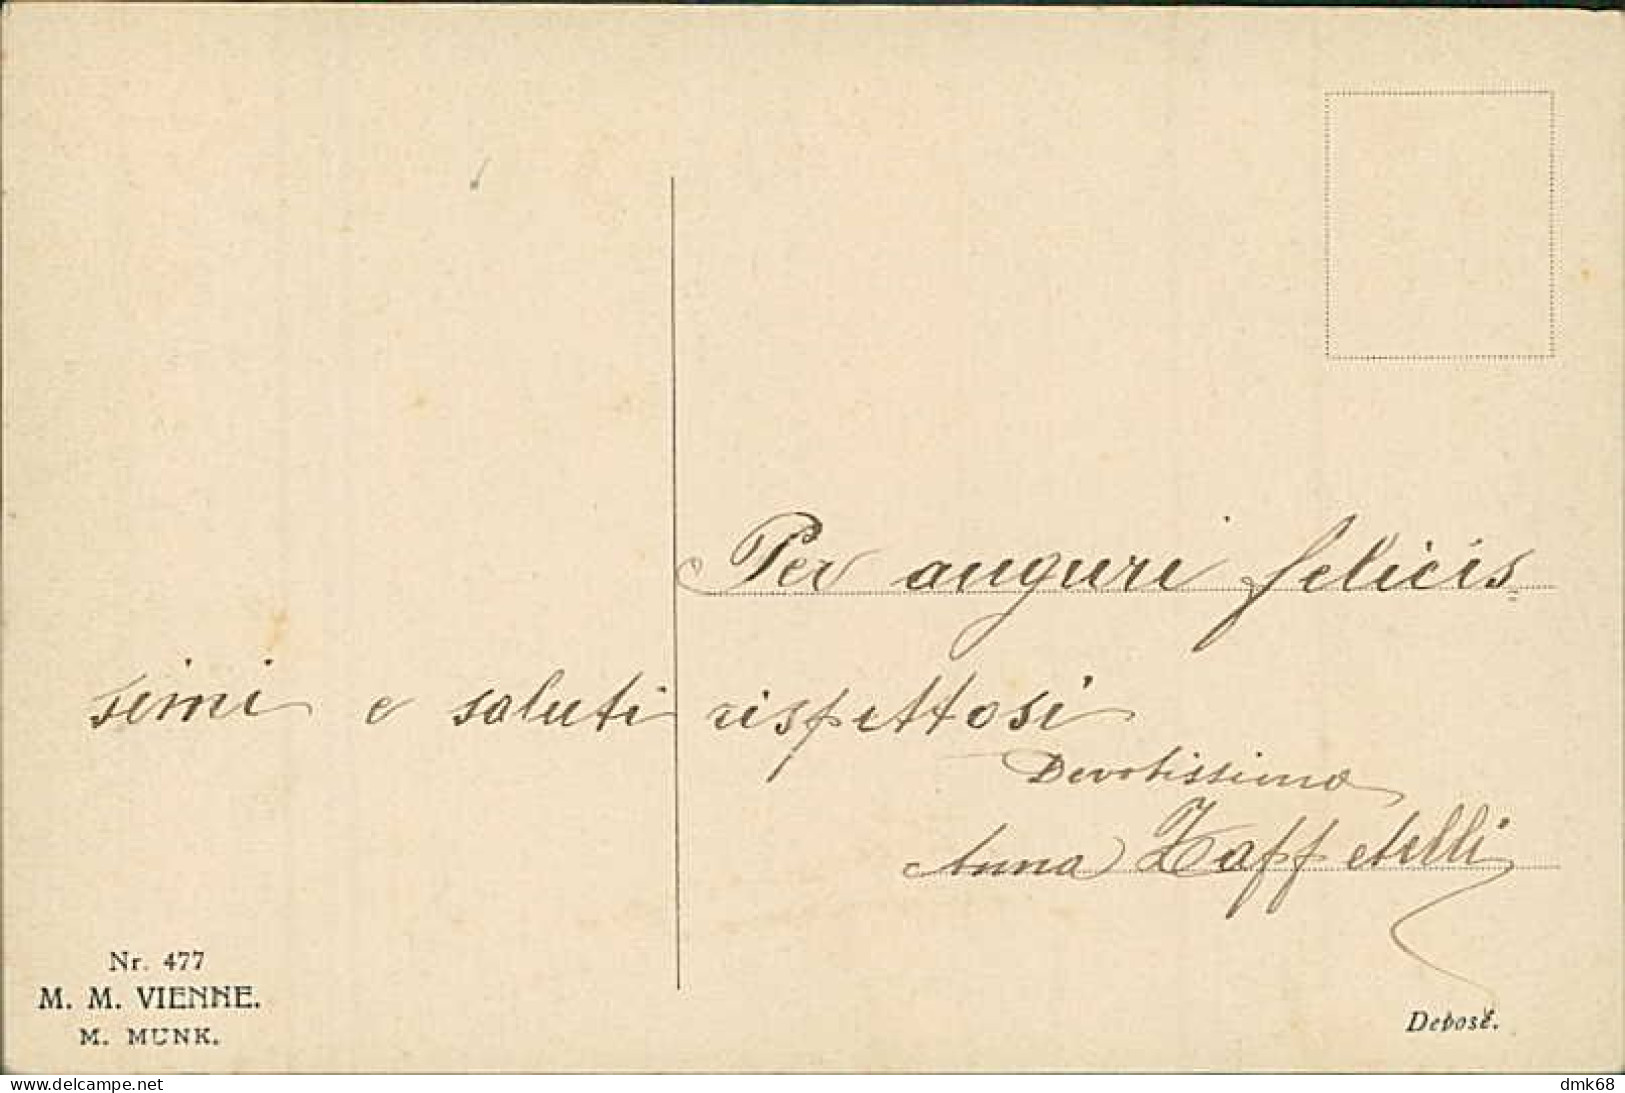 Per auguri felicis=
simi e saluti rispettosi
Devotissima
Anna Zaffetelli
Nr. 477
M. M. VIENNE.
M. MUNK.
Deposé.
www.delcampe.net
dmk68